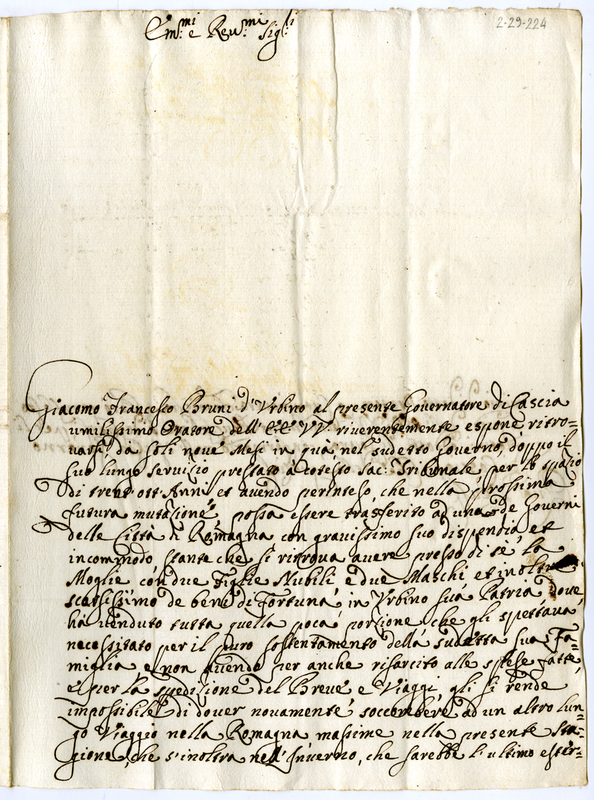 2-29-224
Em.mi e Reu.mi Sig.ri
Giacomo Francesco Bruni d'Vrbino al presente Gouernatore di Cascia
umilissimo Oratore dell' EE. VV. riuerentemente espone ritro=
uarsi da soli noue Mesi in quà nel sudetto Gouerno, doppo il
suo lungo seruicio prestato à cotesto Sac: Tribunale per lo spazio
di trent'ott'Anni, et auendo perinteso, che nella prossima
futura mutazione possa essere trasferito ad uno de Gouerni
delle Città di Romagna con grauissimo suo dispendio et
incommodo stante che si ritroua auere presso di sè la
Moglie con due figlie Nubili e due Maschi et inoltre
scarsissimo de beni di fortuna in Vrbino sua Patria oue,
ha uenduto tutta quella poca porzione che gli spettaua
necessitato per il puro sostentamento della sudetta sua Fa=
miglia e non auendo per anche risarcito alle spese fatte,
e per la spedizione del Breue e Viaggi, gli si rende
impossibile di douer nouamente soccombere ad un altro lun=
go Viaggio nella Romagna massime nella presente sta=
gione, che s'inoltra nell'Inuerno, che sarebbe l'ultimo ester=